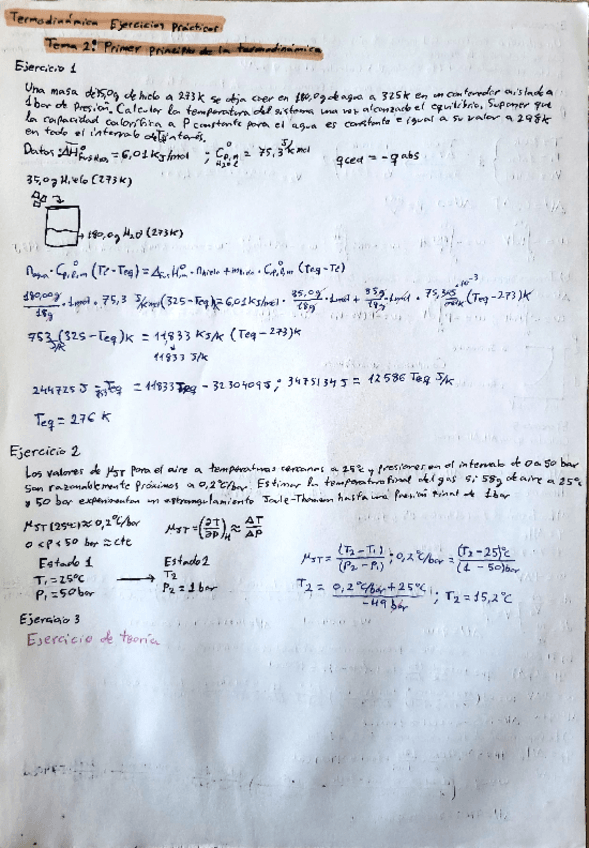 Termodinámica Ejercicios Prácticos
Tema 2: Primer principio de la termodinámica
Ejercicio 1
Una masa de 35,0g de hielo a 273K se deja caer en 180,0g de agua a 325K en un contenedor aislado a
1bar de presión. Calcular la temperatura del sistema una vez alcanzado el equilibrio. Suponer que
la capacidad calorífica a P constante para el agua es constante e igual a su valor a 298K
en todo el intervalo de interés.
Datos: ΔH°fus H2O = 6,01 KJ/mol ; C°P,m H2O = 75,3 J/K mol qced = -qabs
35,0g Hielo (273K)
180,0g H2O (273K)
nagua · C°P,m (Tc - Teq) = Δfus H°m · nhielo + · C°P,m (Teq - Tc)
180,00g/18g · 1mol · 75,3 J/Kmol (325 - Teq) = 6,01 KJ/mol · 35,0g/18g · 1mol + 35g/18g · 1mol · 75,3 · 10⁻³ (Teq - 273)K
753 J/K (325 - Teq)K = 11,833 KJ/K (Teq - 273)K
11833 J/K
244725 J - 753 Teq = 11833 Teq - 3230409 J ; 3475134 J = 12586 Teq J/K
Teq = 276 K
Ejercicio 2
Los valores de μJT para el aire a temperaturas cercanas a 25°C y presiones en el intervalo de 0 a 50 bar
son razonablemente próximos a 0,2°C/bar. Estimar la temperatura final del gas si 58g de aire a 25°C
y 50 bar experimentan un estrangulamiento Joule-Thomson hasta una presión final de 1bar
μJT (25°C) ≈ 0,2°C/bar μJT = (∂T/∂P)H ≈ ΔT/ΔP
0 < P < 50 bar ≈ cte
Estado 1 → Estado 2
T1 = 25°C T2
P1 = 50bar P2 = 1bar
μJT = (T2 - T1)/(P2 - P1) ; 0,2°C/bar = (T2 - 25)°C/(1 - 50)bar
T2 = 0,2°C/bar + 25°C/-49 bar ; T2 = 15,2°C
Ejercicio 3
Ejercicio de teoría